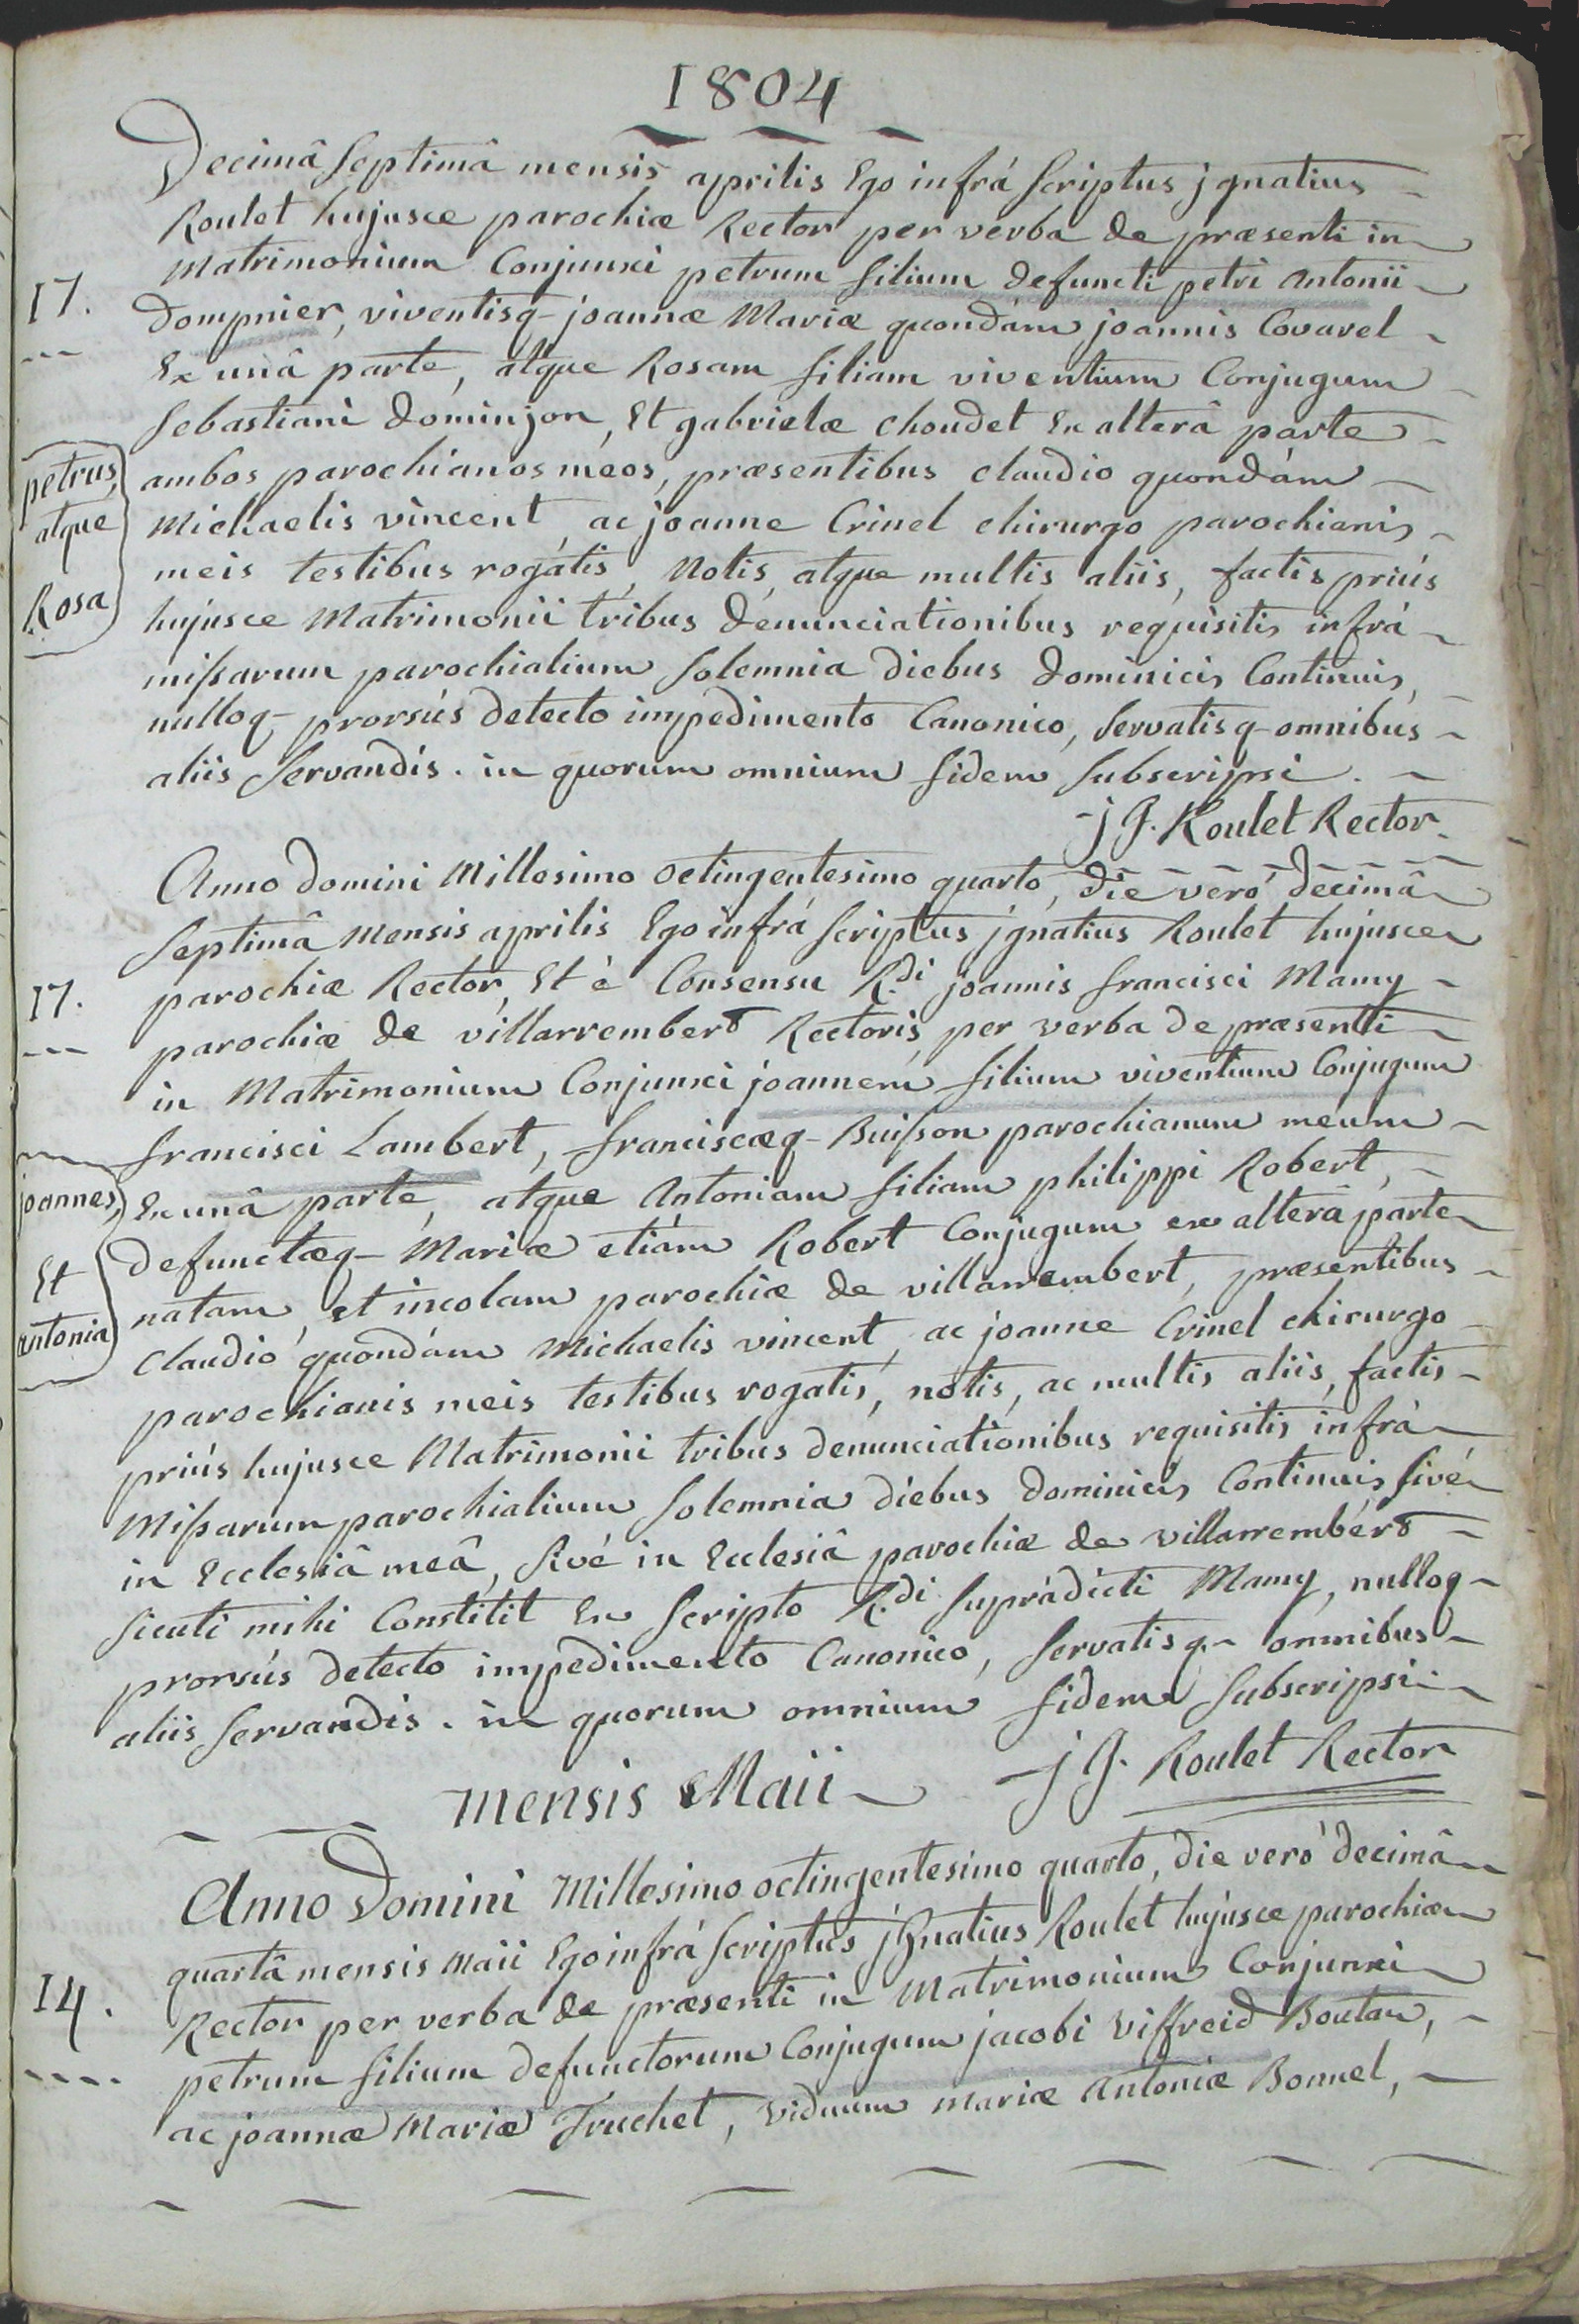 1804
Decimâ Septimâ mensis aprilis Ego infrá Scriptus jgnatius
Roulet hujusce parochiæ Rector per verba de præsenti in
Matrimonium Conjunxi petrum filium defuncti petri Antonii
17.
Dompnier, viventisq- joannæ Mariæ quondám joannis Covarel
Ex unâ parte, atque Rosam filiam viventium Conjugum
Sebastiani Dominjon, Et gabrielæ choudet Ex alterâ parte
petrus,
atque
Rosa
ambos parochianos meos, præsentibus claudio quondám
Michaelis vincent ac joanne Crinel chirurgo parochianis
meis testibus rogátis, Notis, atque multis aliis, factis priús
hujusce Matrimonii tribus denunciationibus requisitis infrá
missarum parochialium Solemnia diebus Dominicis Continuis,
nulloq- prorsús detecto impedimento Canonico, Servatisq- omnibus
aliis Servandis. in quorum omnium fidem Subscripsi.
j G. Roulet Rector.
Anno Domini Millesimo octingentesimo quarto, die veró decimâ
Septimâ Mensis aprilis Ego infrá Scriptus jgnatius Roulet hujusce
17.
parochiæ Rector, Et è Consensu R.di joannis francisci Mamy
parochiæ de villarrembert Rectoris, per verba de præsenti
in Matrimonium Conjunxi joannem filium viventium Conjugum
francisci Lambert, franciscæq- Buisson parochianum meum
joannes,
Et
antonia
Ex unâ parte, atque Antoniam filiam philippi Robert,
defunctæq- Mariæ etiám Robert Conjugum ex alterâ parte
natam, et incolam parochiæ de villarrembert, præsentibus
claudio quondám Michaelis vincent, ac joanne Crinel chirurgo
parochianis meis testibus rogatis, notis, ac multis aliis, factis
priús hujusce Matrimonii tribus denunciationibus requisitis infrá
Missarum parochialium Solemnia diebus Dominicis Continuis sivé
in Ecclesiâ meâ, Sivé in Ecclesiâ parochiæ de villarrembert
sicuti mihi Constitit Ex Scripto R.di Suprádicti Mamy, nulloq-
prorsús detecto impedimento Canonico, Servatisq- omnibus
aliis Servandis. in quorum omnium fidem Subscripsi
j G. Roulet Rector
mensis Maii
Anno Domini Millesimo octingentesimo quarto, die veró decimâ
quartâ mensis Maii Ego infrá Scriptus jgnatius Roulet hujusce parochiæ
14.
Rector per verba de præsenti in Matrimonium Conjunxi
petrum filium defunctorum Conjugum jacobi Viffreid Boutan,
ac joannæ Mariæ Truchet, viduum mariæ Antoniæ Bonnel,